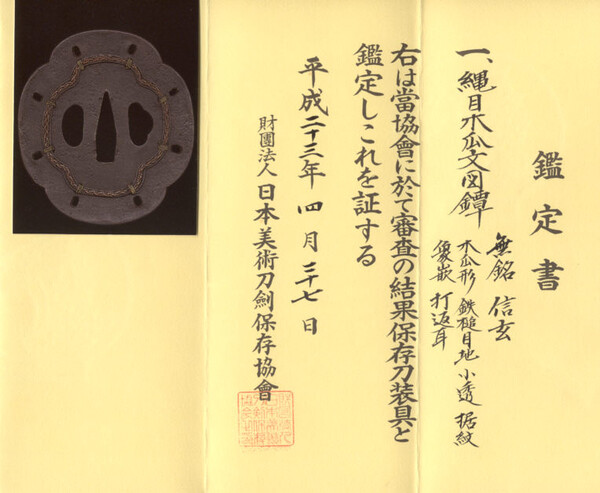 鑑定書
一、縄目木瓜文図鐔
無銘 信玄
木瓜形 鉄槌目地 小透 据紋
象嵌 打返耳
右は當協會に於て審査の結果保存刀装具と
鑑定しこれを証する
平成二十三年 四月 二十七日
財團法人 日本美術刀劍保存協會